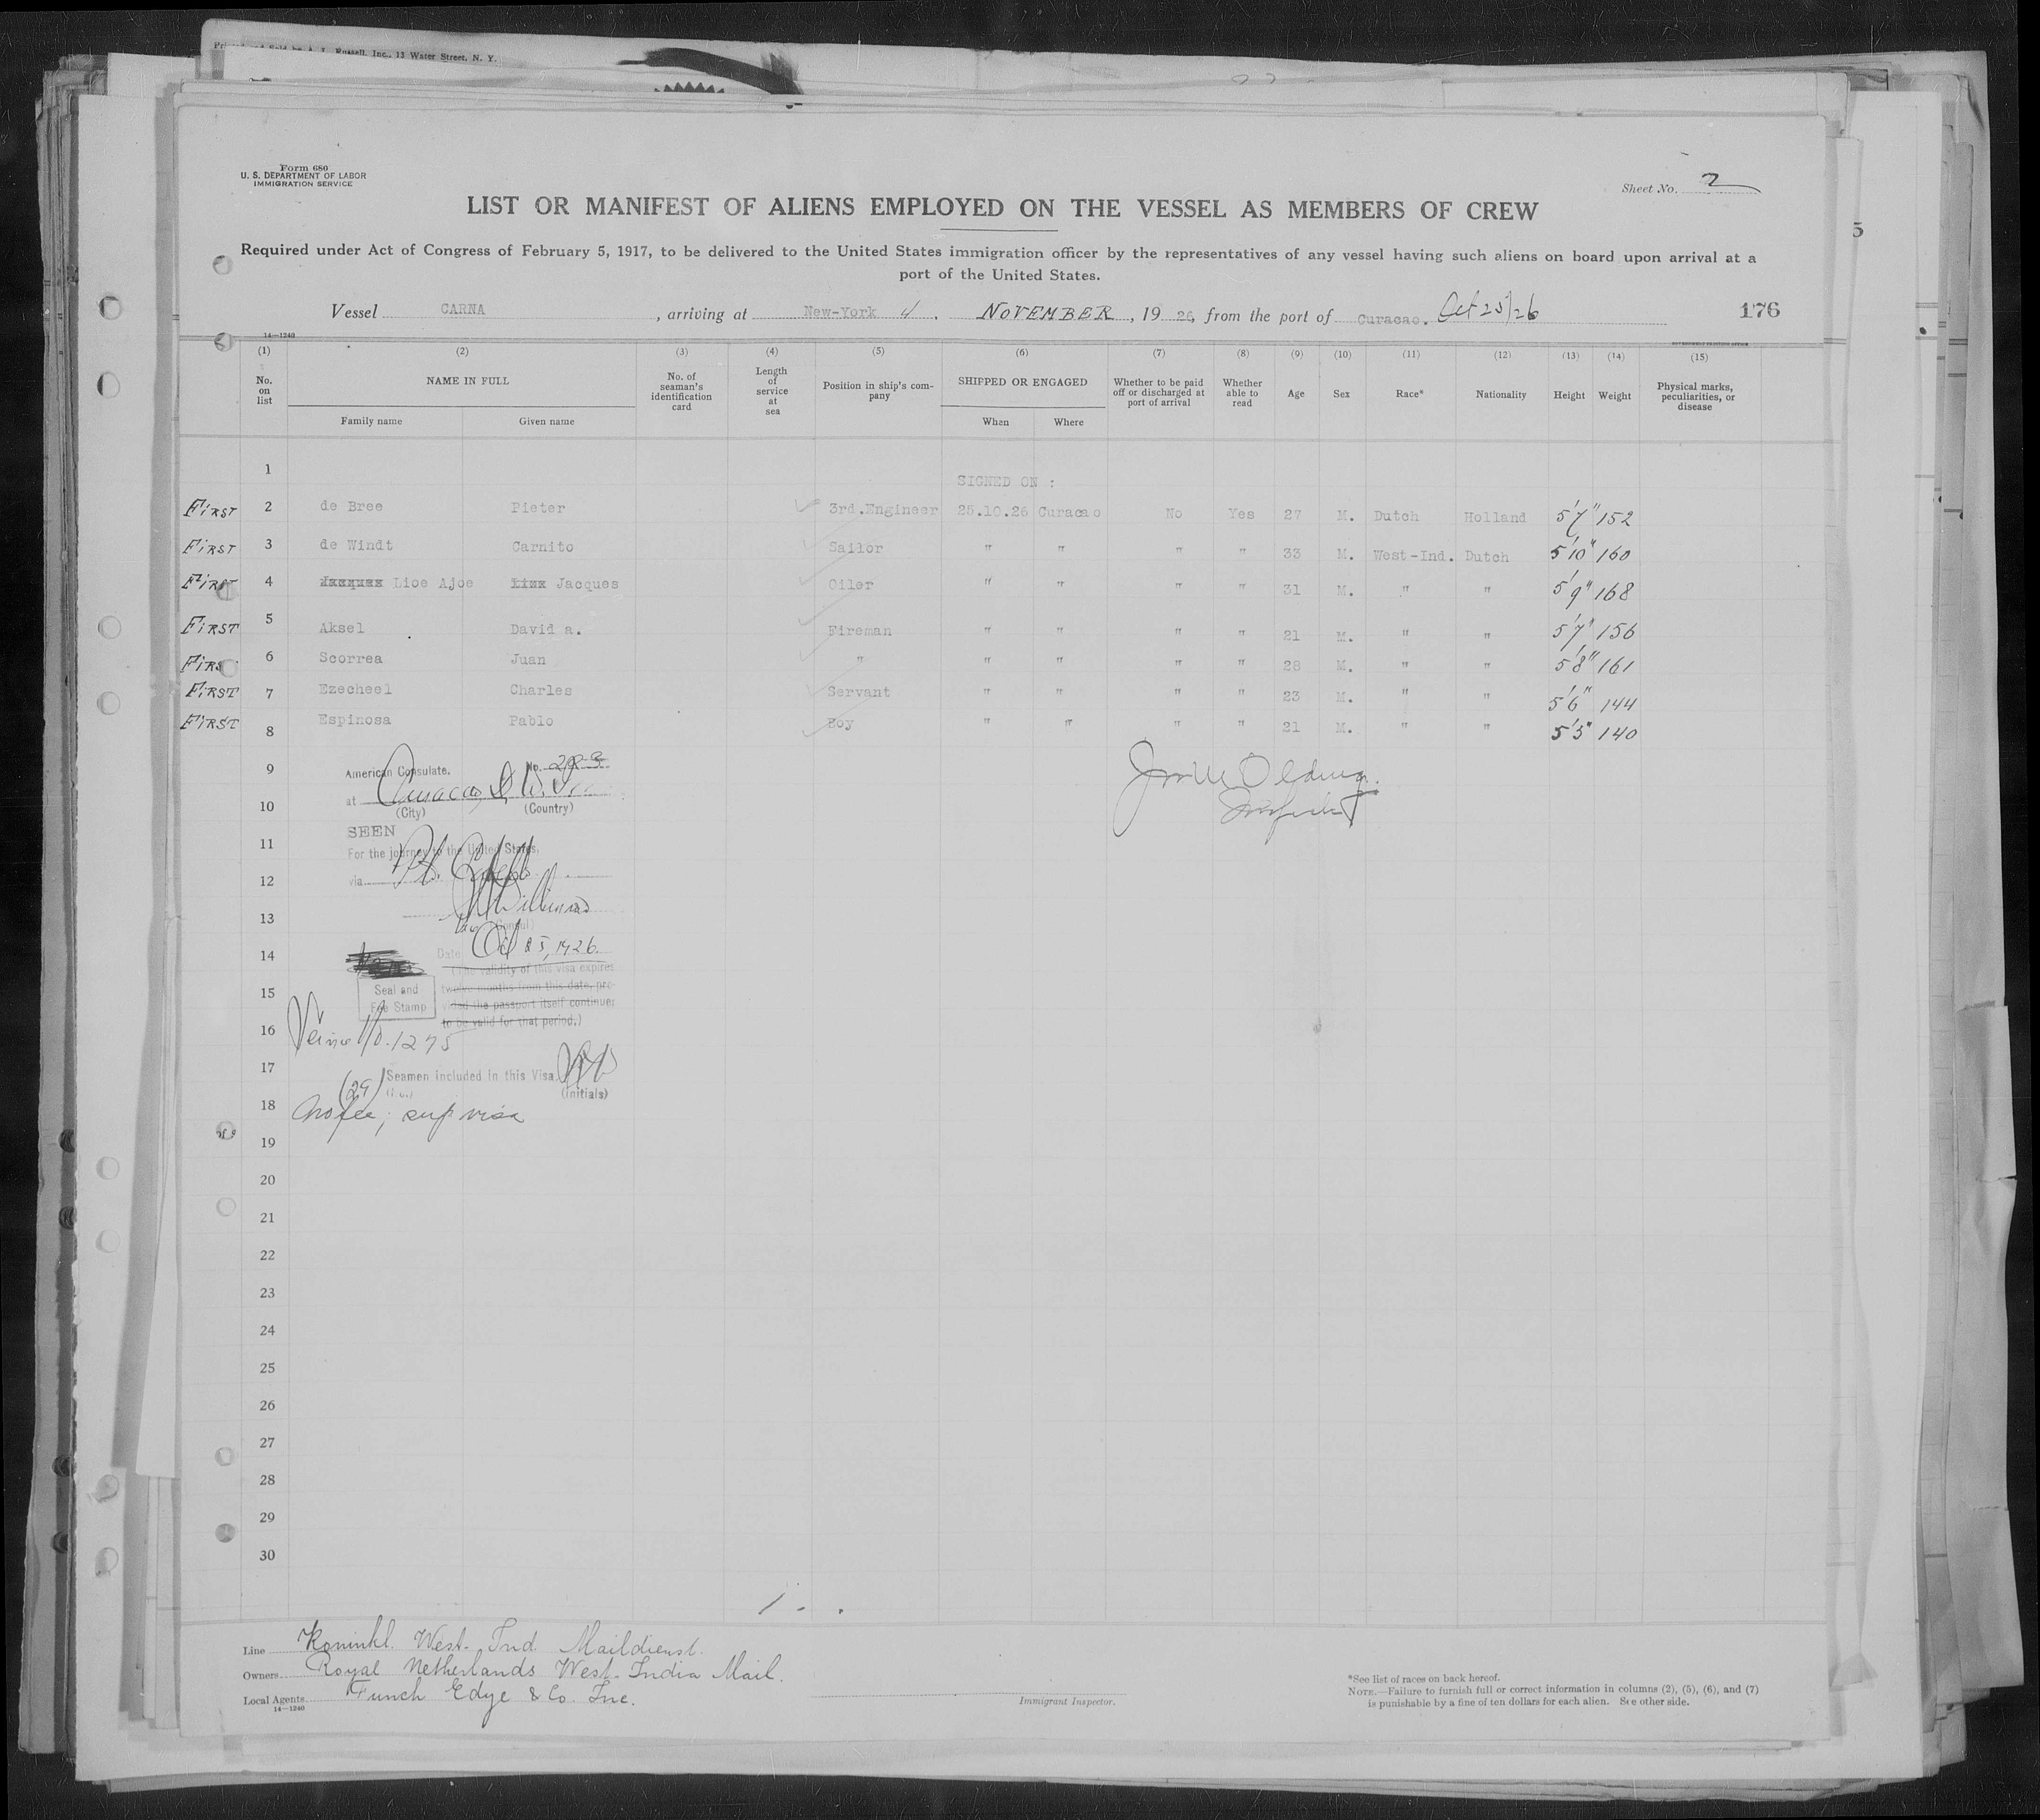 Inc., 13 Water Street, N. Y.
Form 680
U. S. DEPARTMENT OF LABOR
IMMIGRATION SERVICE
Sheet No. 2
LIST OR MANIFEST OF ALIENS EMPLOYED ON THE VESSEL AS MEMBERS OF CREW
Required under Act of Congress of February 5, 1917, to be delivered to the United States immigration officer by the representatives of any vessel having such aliens on board upon arrival at a
port of the United States.
Vessel CARNA, arriving at New-York 4, NOVEMBER, 1926, from the port of Curacao. Oct 25/26
176
14—1240
(1) (2) (3) (4) (5) (6) (7) (8) (9) (10) (11) (12) (13) (14) (15)
No. on list NAME IN FULL No. of seaman's identification card Length of service at sea Position in ship's company SHIPPED OR ENGAGED Whether to be paid off or discharged at port of arrival Whether able to read Age Sex Race* Nationality Height Weight Physical marks, peculiarities, or disease
Family name Given name When Where
1 SIGNED ON :
FIRST 2 de Bree Pieter 3rd.Engineer 25.10.26 Curacao No Yes 27 M. Dutch Holland 5'7" 152
FIRST 3 de Windt Carnito Sailor " " " " 33 M. West-Ind. Dutch 5'10" 160
FIRST 4 Jacques Lioe Ajoe Jacques Oiler " " " " 31 M. " " 5'9" 168
FIRST 5 Aksel David a. Fireman " " " " 21 M. " " 5'7" 156
FIRS 6 Scorrea Juan " " " " " 28 M. " " 5'8" 161
FIRST 7 Ezecheel Charles Servant " " " " 23 M. " " 5'6" 144
FIRST 8 Espinosa Pablo Boy " " " " 21 M. " " 5'5" 140
9
American Consulate. No. 223
10
at Curacao, D. W. I.
(City) (Country)
11
SEEN
For the journey to the United States,
12
via
13
(Consul)
14
Date Oct 25, 1926.
(The validity of this visa expires
15
Seal and twelve months from this date, pro-
Fee Stamp vided the passport itself continues
16
to be valid for that period.)
1275
17
(29) Seamen included in this Visa
(initials)
18
No fee; sup visa
19
20
21
22
23
24
25
26
27
28
29
30
Line Koninkl. West. Ind. Maildienst.
Owners Royal Netherlands West. India Mail.
Local Agents Funch Edye & Co. Inc.
14—1240
Immigrant Inspector.
*See list of races on back hereof.
NOTE.—Failure to furnish full or correct information in columns (2), (5), (6), and (7)
is punishable by a fine of ten dollars for each alien. See other side.